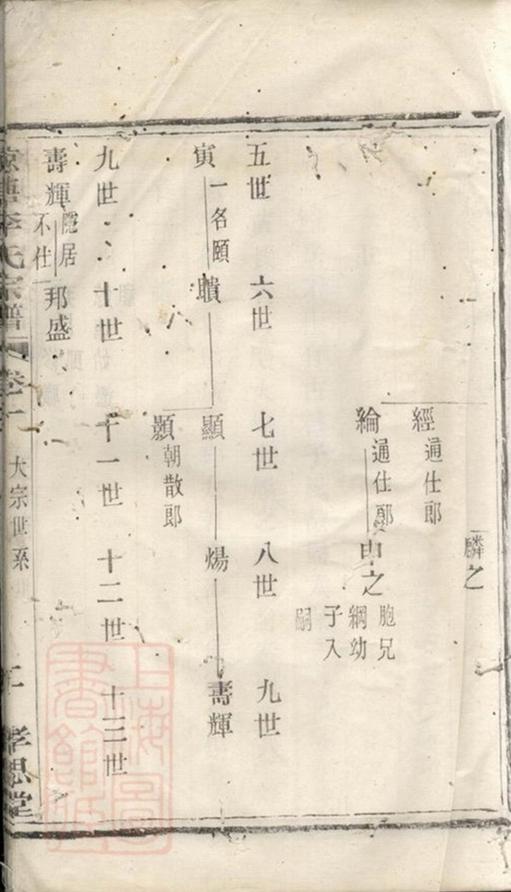 麟之
經通仕郎
綸通仕郎 申之 胞兄綱幼子入嗣
五世 六世 七世 八世 九世
寅一名頤 䪼 顯 煬 壽輝
顥朝散郎
九世 十世 十一世 十二世 十三世
壽輝隱居不仕 邦盛
李氏宗譜 卷一 大宗世系 孝思堂
上海圖書館藏